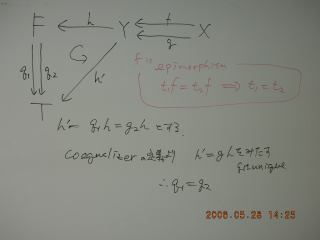 F h Y f X
g
g₁ g₂ h'
T
f is epimorphism
t₁f = t₂f ⟹ t₁ = t₂
h' = g₁h = g₂h とする
coequalizer の定義より h' = gh をみたす
g は unique
∴ g₁ = g₂
2008.05.28 14:25